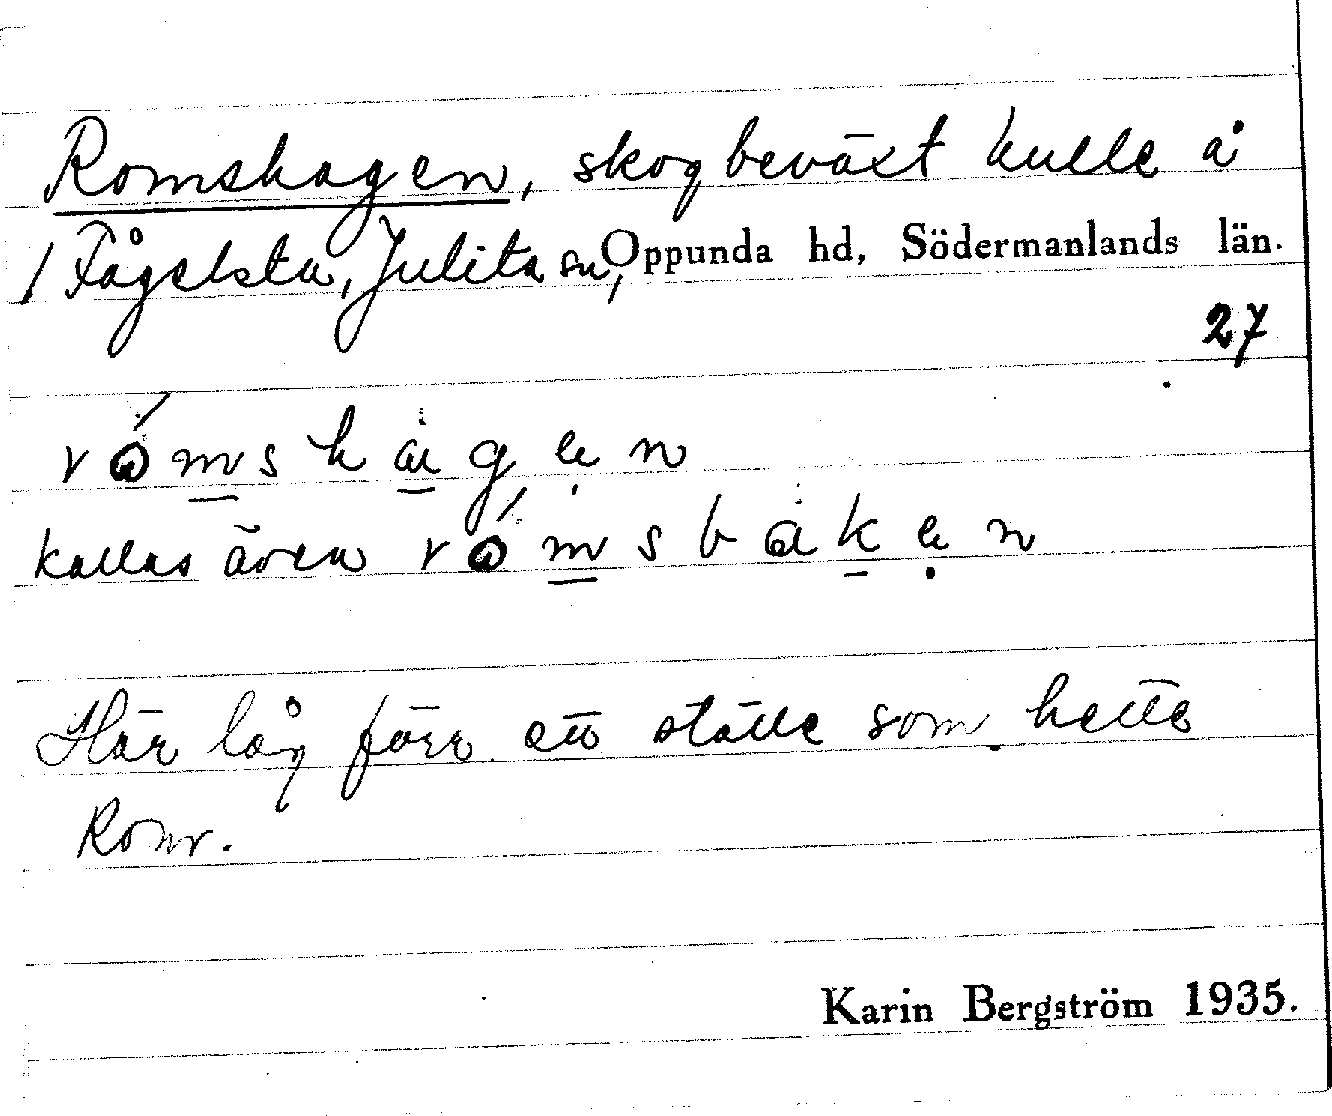 Romshagen, skogbeväxt kulle å
/ Fågelsta, Julita sn, Oppunda hd, Södermanlands län.
27
rómshàgen
kallas även rómsbàken
Här låg förr ett ställe som hette
Rom.
Karin Bergström 1935.